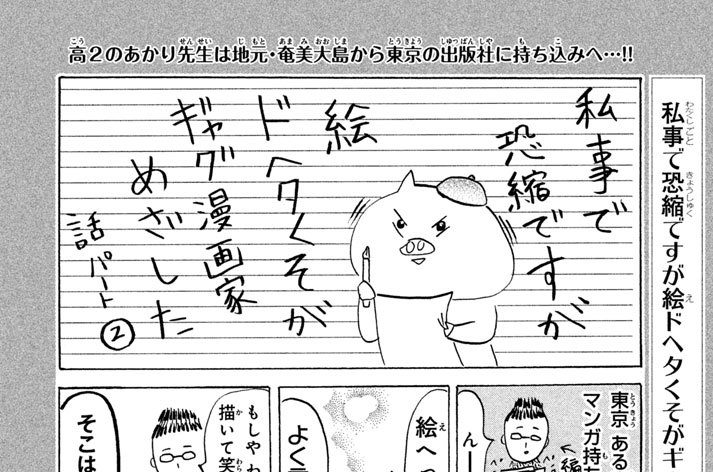 高2のあかり先生は地元・奄美大島から東京の出版社に持ち込みへ…!!
私事で恐縮ですが絵ドヘタくそがギ
私事で
恐縮ですが
絵
ドヘタくそが
ギャグ漫画家
めざした
話パート
②
東京 ある
マンガ持
んー
絵へ
よく
もしやわ
描いて笑
そこは